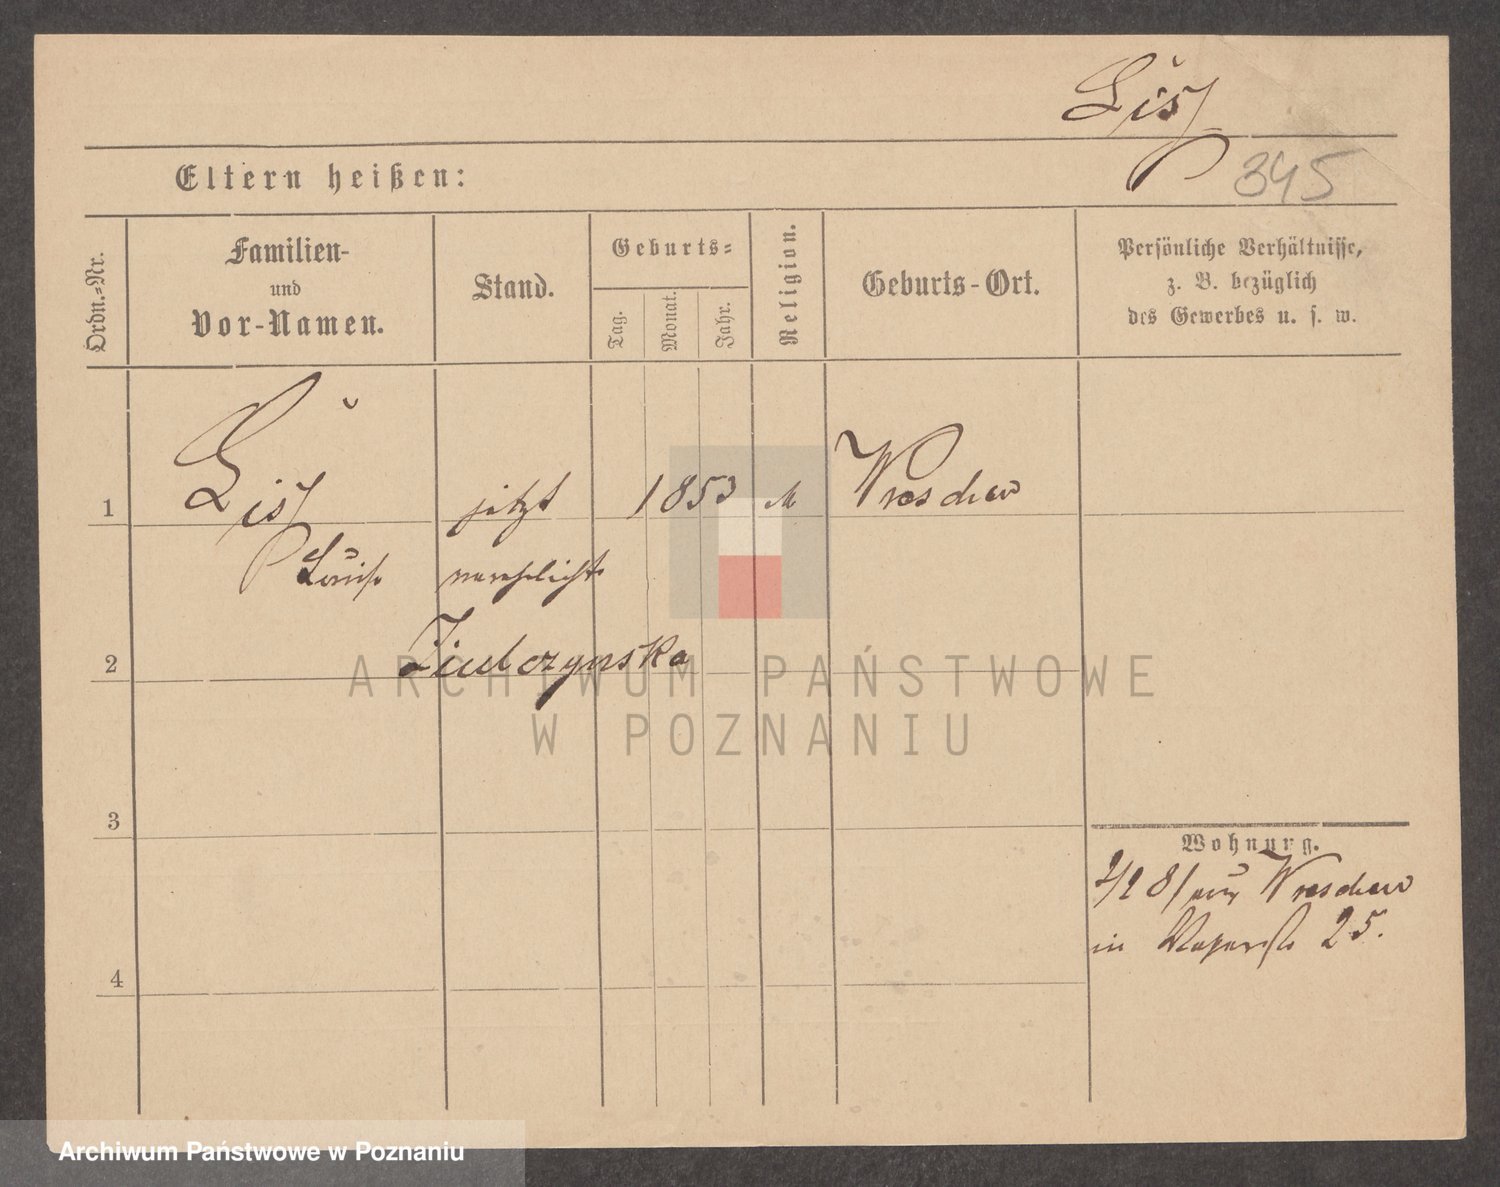 Lis
345
Eltern heißen:
Ordn.-Nr.
Familien-
und
Vor-Namen.
Stand.
Geburts-
Tag.
Monat.
Jahr.
Religion.
Geburts-Ort.
Persönliche Verhältnisse,
z. B. bezüglich
des Gewerbes u. s. w.
1
Lis jetzt 1853 Wreschen
Louise verehelichte
2
3
Wohnung.
81 aus Wreschen
in 25.
4
ARCHIWUM PAŃSTWOWE
W POZNANIU
Archiwum Państwowe w Poznaniu